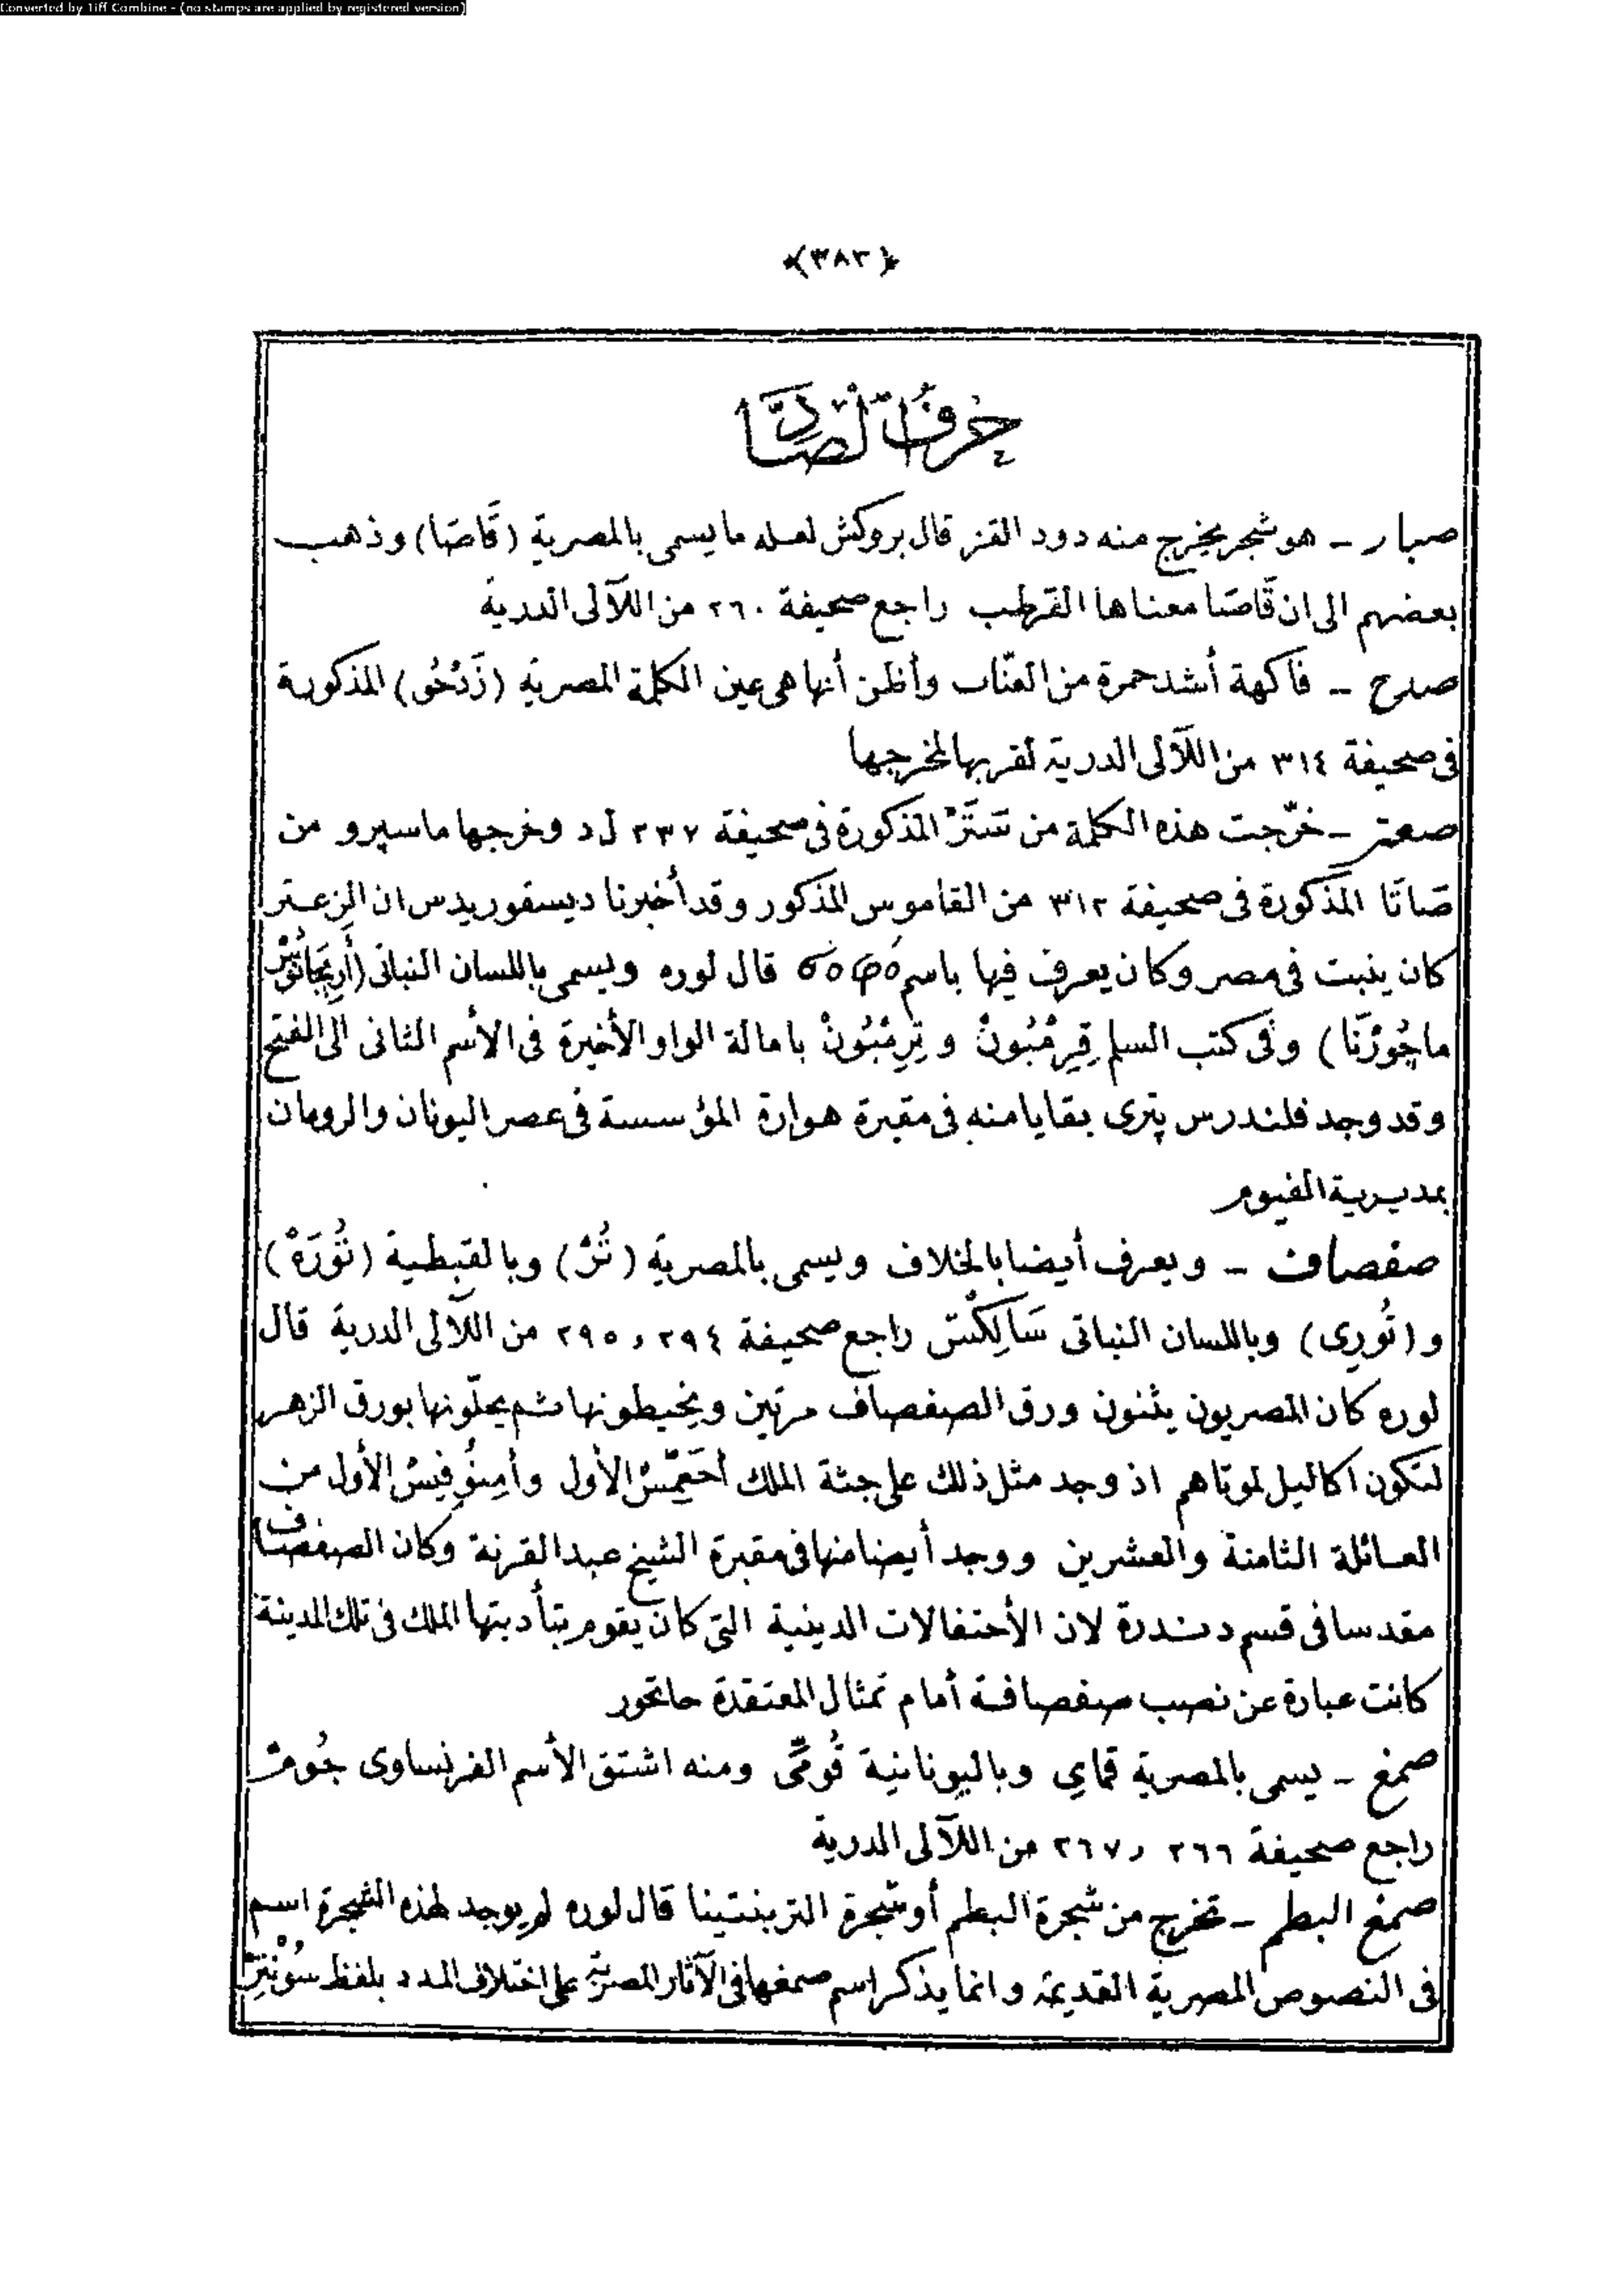 Converted by Tiff Combine - (no stamps are applied by registered version)
﴿٣٨٣﴾
حرف الصاد
صبار ــ هو شجر يخرج منه دود القز قال بروكش لعله ما يسمى بالمصرية (قَاصَا) وذهب
بعضهم الى ان قَاصَا معناها القرطب راجع صحيفة ٢٦٠ من اللآلى الدرية
صدح ــ فاكهة أشد حمرة من العنّاب وأظن أنها هى عين الكلمة المصرية (زَدْخُو) المذكورة
فى صحيفة ٣١٤ من اللآلى الدرية لقربها لمخرجها
صعتر ــ خرّجت هذه الكلمة من المذكورة فى صحيفة ٢٣٧ ل د وخرجها ماسپرو من
صَاتَا المذكورة فى صحيفة ٣١٢ من القاموس المذكور وقد أخبرنا ديسقوريدس ان الزعتر
كان ينبت فى مصر وكان يعرف فيها باسم قال لوره ويسمى باللسان النباتى (أُرِيجَانُوسْ
ماچُورَنَا) وفى كتب السلم قِرِمْبُونْ و تِرِمْبُونْ بامالة الواو الأخيرة فى الأسم الثانى الى الفتح
وقد وجد فلندرس پترى بقايا منه فى مقبرة هوارة المؤسسة فى عصر اليونان والرومان
بمديرية الفيوم
صفصاف ــ ويعرف أيضا بالخلاف ويسمى بالمصرية (تُرْ) وبالقبطية (تُورَهْ)
و (تُورِى) وباللسان النباتى سَالِكْسْ راجع صحيفة ٢٩٤ و ٢٩٥ من اللآلى الدرية قال
لوره كان المصريون يثنون ورق الصفصاف مرتين ويخيطونها ثم يحلّونها بورق الزهر
لتكون اكاليل لموتاهم اذ وجد مثل ذلك على جثة الملك أحَعِمِّسْ الأول وأمِنُوفِيسْ الأول من
العائلة الثامنة والعشرين ووجد أيضا منها فى مقبرة الشيخ عبد القرنة وكان الصفصاف
مقدسا فى قسم دندرة لان الأحتفالات الدينية التى كان يقوم بتأديتها الملك فى تلك المدينة
كانت عبارة عن نصب صفصافة أمام تمثال المعتقدة حاتحور
صمغ ــ يسمى بالمصرية قماي وباليونانية قُومِّى ومنه اشتق الأسم الفرنساوى جُومْ
راجع صحيفة ٢٦٦ و ٢٦٧ من اللآلى الدرية
صمغ البطم ــ تخرج من شجرة البطم أو شجرة التربنتينا قال لوره لم يوجد لهذه الشجرة اسم
فى النصوص المصرية القديمة وانما يذكر اسم صمغها فى الآثار المصرية على اختلاف المدد بلفظ سُونْتِرْ